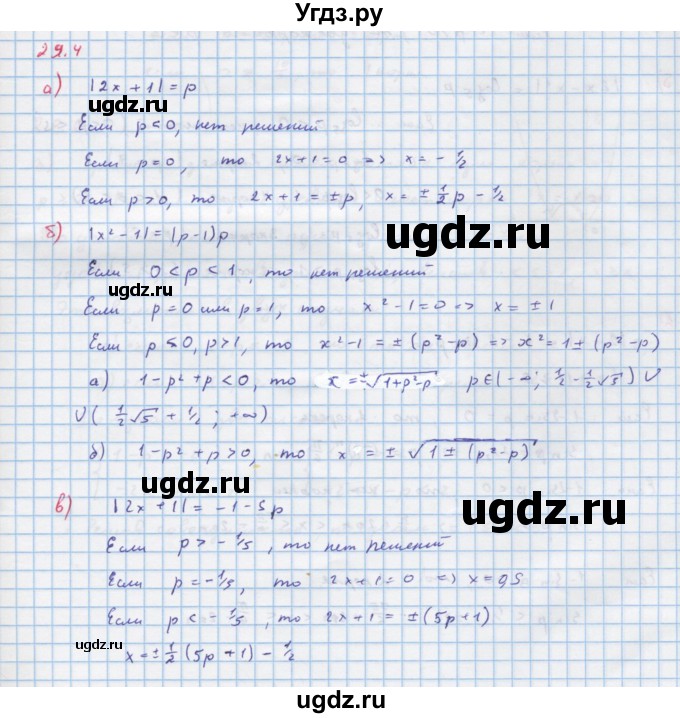 Угдз.ру
29.4
а) |2x + 1| = p
ugdz.ru
Если p < 0, нет решений
Если p = 0, то 2x + 1 = 0 => x = - 1/2
Если p > 0, то 2x + 1 = ± p, x = ± 1/2 p - 1/2
б) |x² - 1| = (p-1)p
ugdz.ru
Если 0 < p < 1, то нет решений
ugdz.ru
Если p = 0 или p = 1, то x² - 1 = 0 => x = ± 1
Если p ≤ 0, p > 1, то x² - 1 = ± (p² - p) => x² = 1 ± (p² - p)
а) 1 - p² + p < 0, то x = ±√(1+p²-p) p ∈ (-∞; 1/2 - 1/2 √5) ∪
∪ ( 1/2 √5 + 1/2 ; +∞)
б) 1 - p² + p > 0, то x = ± √(1 ± (p² - p))
ugdz.ru ugdz.ru
в) |2x + 1| = -1 - 5p
Если p > - 1/5, то нет решений
Если p = - 1/5, то 2x + 1 = 0 => x = 0,5
Если p < - 1/5, то 2x + 1 = ± (5p + 1)
ugdz.ru
x = ± 1/2 (5p + 1) - 1/2
ugdz.ru
ugdz.ru